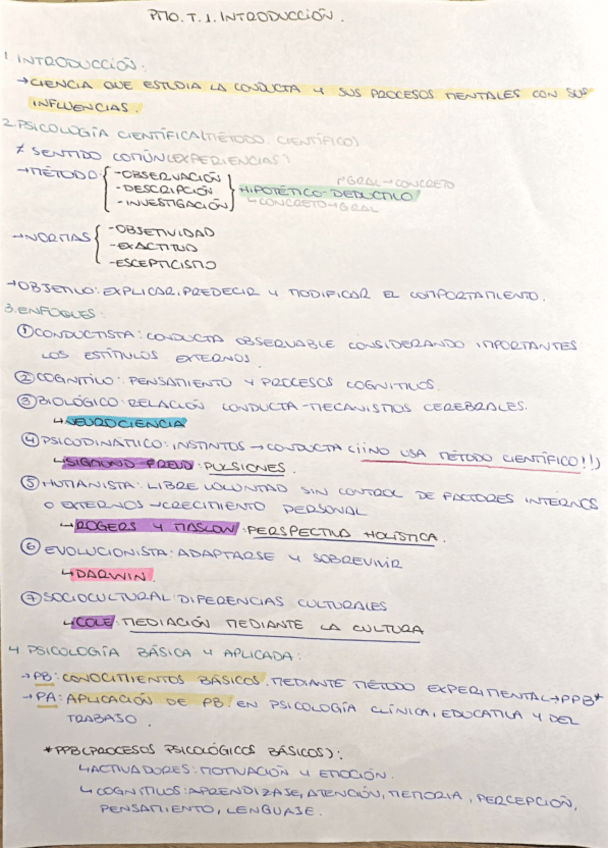 PMO. T. 1. INTRODUCCIÓN.
1 INTRODUCCIÓN:
→CIENCIA QUE ESTUDIA LA CONDUCTA Y SUS PROCESOS MENTALES CON SUS
INFLUENCIAS.
2. PSICOLOGÍA CIENTÍFICA(MÉTODO CIENTÍFICO)
≠ SENTIDO COMÚN(EXPERIENCIAS)
→MÉTODO { -OBSERVACIÓN
-DESCRIPCIÓN } HIPOTÉTICO-DEDUCTIVO ↱GRAL→CONCRETO
-INVESTIGACIÓN ↳CONCRETO→GRAL
→NORMAS { -OBJETIVIDAD
-EXACTITUD
-ESCEPTICISMO
→OBJETIVO: EXPLICAR, PREDECIR Y MODIFICAR EL COMPORTAMIENTO.
3. ENFOQUES:
① CONDUCTISTA: CONDUCTA OBSERVABLE CONSIDERANDO IMPORTANTES
LOS ESTÍMULOS EXTERNOS.
② COGNITIVO: PENSAMIENTO Y PROCESOS COGNITIVOS.
③ BIOLÓGICO: RELACIÓN CONDUCTA-MECANISMOS CEREBRALES.
↳NEUROCIENCIA
④ PSICODINÁMICO: INSTINTOS → CONDUCTA (¡¡NO USA MÉTODO CIENTÍFICO!!)
↳SIGMUND FREUD: PULSIONES.
⑤ HUMANISTA: LIBRE VOLUNTAD SIN CONTROL DE FACTORES INTERNOS
O EXTERNOS →CRECIMIENTO PERSONAL
↳ROGERS Y MASLOW: PERSPECTIVA HOLÍSTICA.
⑥ EVOLUCIONISTA: ADAPTARSE Y SOBREVIVIR
↳DARWIN.
⑦ SOCIOCULTURAL: DIFERENCIAS CULTURALES
↳COLE: MEDIACIÓN MEDIANTE LA CULTURA
4. PSICOLOGÍA BÁSICA Y APLICADA:
→PB: CONOCIMIENTOS BÁSICOS. MEDIANTE MÉTODO EXPERIMENTAL→PPB*
→PA: APLICACIÓN DE PB: EN PSICOLOGÍA CLÍNICA, EDUCATIVA Y DEL
TRABAJO.
*PPB(PROCESOS PSICOLÓGICOS BÁSICOS):
↳ACTIVADORES: MOTIVACIÓN Y EMOCIÓN.
↳COGNITIVOS: APRENDIZAJE, ATENCIÓN, MEMORIA, PERCEPCIÓN,
PENSAMIENTO, LENGUAJE.